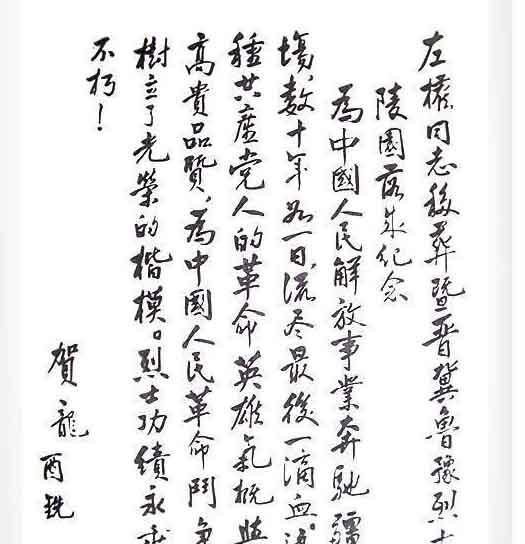 左權同志移葬暨晋冀魯豫烈士
陵園落成纪念
為中國人民解放事業奔馳疆
塲，数十年如一日，流尽最後一滴血。
種共產党人的革命英雄氣概
高貴品質，為中國人民革命鬥争
樹立了光榮的楷模。烈士功績永垂
不朽！
賀龍